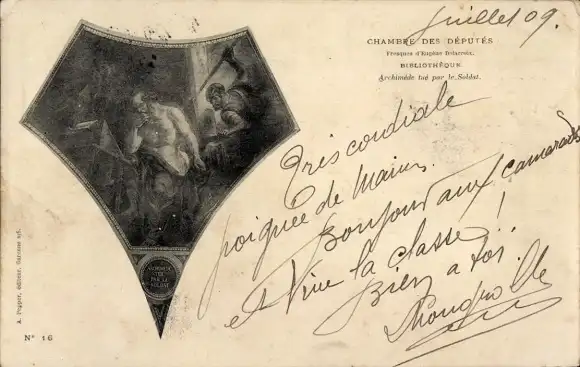 Juillet 09.
CHAMBRE DES DÉPUTÉS
Fresques d'Eugène Delacroix.
BIBLIOTHÈQUE
Archimède tué par le Soldat.
Très cordiale
poignée de Mains.
Bonjour aux camarades
et Vive la classe !
Bien à toi.
ARCHIMEDE
TUE
PAR LE
SOLDAT
A. Pepper, éditeur,
N° 16